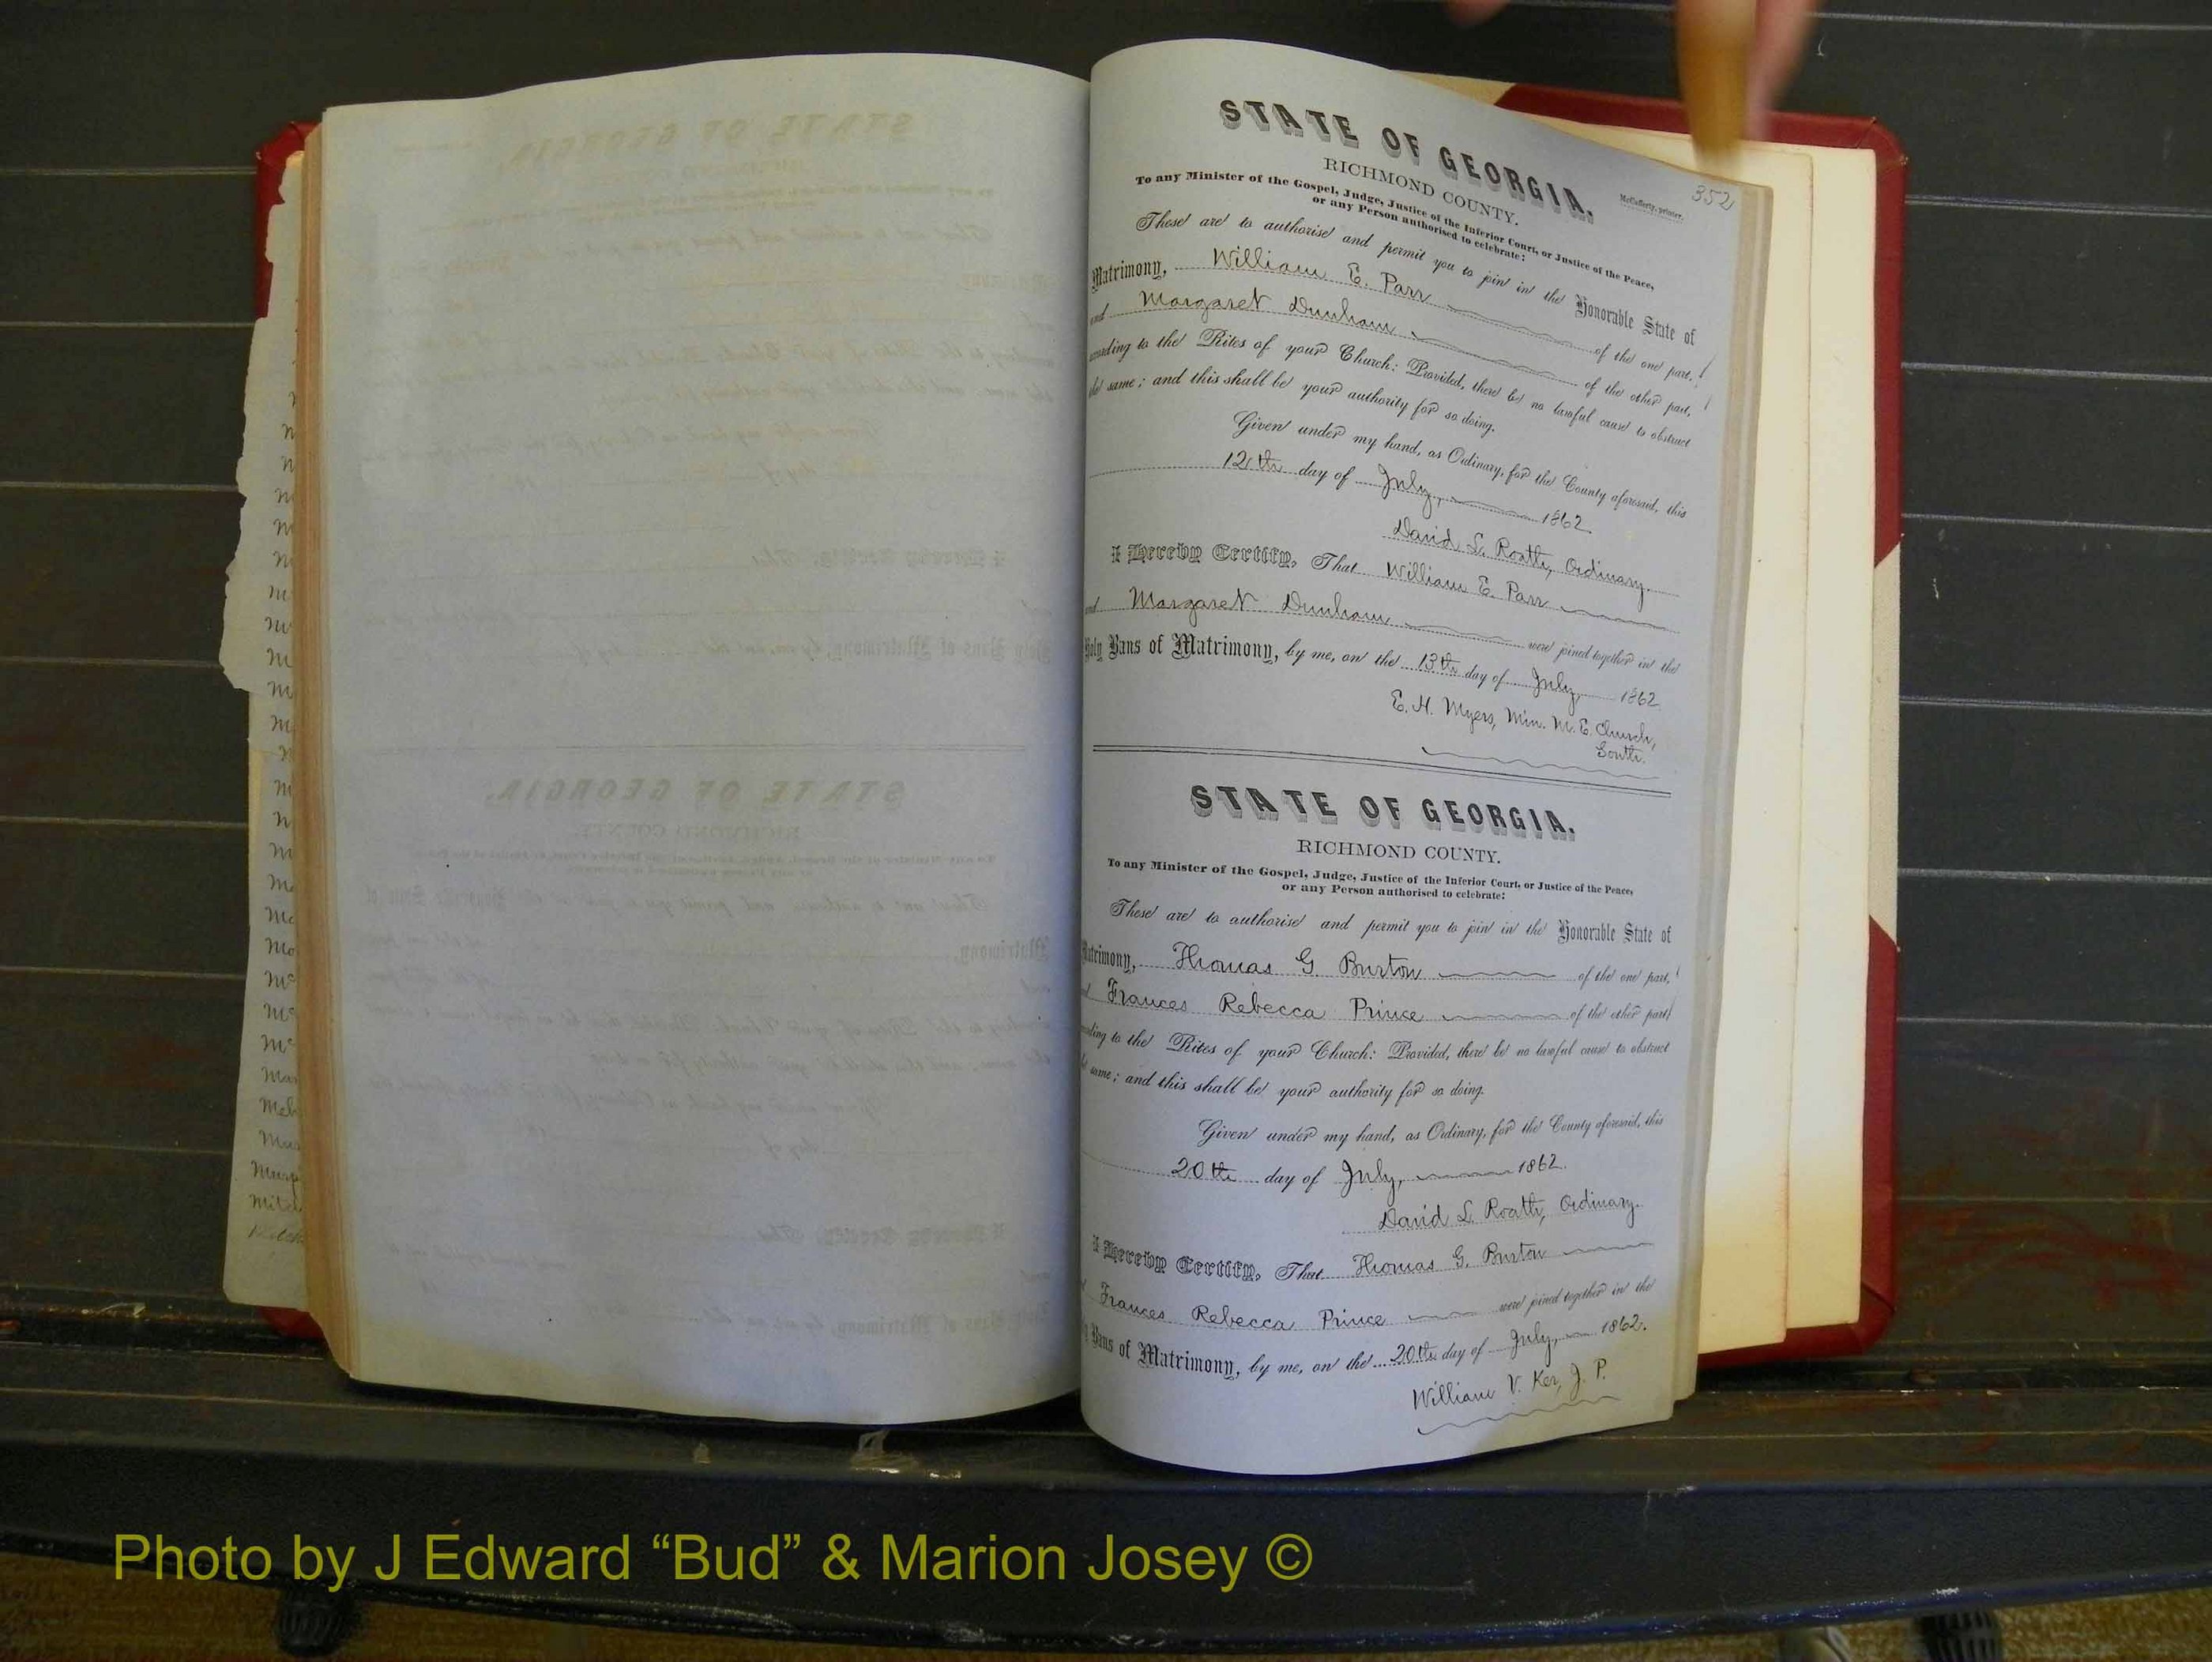 352
STATE OF GEORGIA.
McCafferty, printer.
RICHMOND COUNTY.
To any Minister of the Gospel, Judge, Justice of the Inferior Court, or Justice of the Peace,
or any Person authorised to celebrate:
These are to authorise and permit you to join in the Honorable State of
Matrimony, William E. Parr of the one part,
and Margaret Dunham of the other part,
according to the Rites of your Church: Provided, there be no lawful cause to obstruct
the same; and this shall be your authority for so doing.
Given under my hand, as Ordinary, for the County aforesaid, this
12th day of July, 1862.
David L. Roath, Ordinary.
I Hereby Certify, That William E. Parr
and Margaret Dunham were joined together in the
Holy Bans of Matrimony, by me, on the 13th day of July 1862.
E. H. Myers, Min. M. E. Church,
South.
STATE OF GEORGIA.
RICHMOND COUNTY.
To any Minister of the Gospel, Judge, Justice of the Inferior Court, or Justice of the Peace,
or any Person authorised to celebrate:
These are to authorise and permit you to join in the Honorable State of
Matrimony, Thomas G. Burton of the one part,
Frances Rebecca Prince of the other part,
according to the Rites of your Church: Provided, there be no lawful cause to obstruct
same; and this shall be your authority for so doing.
Given under my hand, as Ordinary, for the County aforesaid, this
20th day of July, 1862.
David L. Roath, Ordinary.
I Hereby Certify, That Thomas G. Burton
Frances Rebecca Prince were joined together in the
Bans of Matrimony, by me, on the 20th day of July, 1862.
William V. Ker, J. P.
Photo by J Edward “Bud” & Marion Josey ©